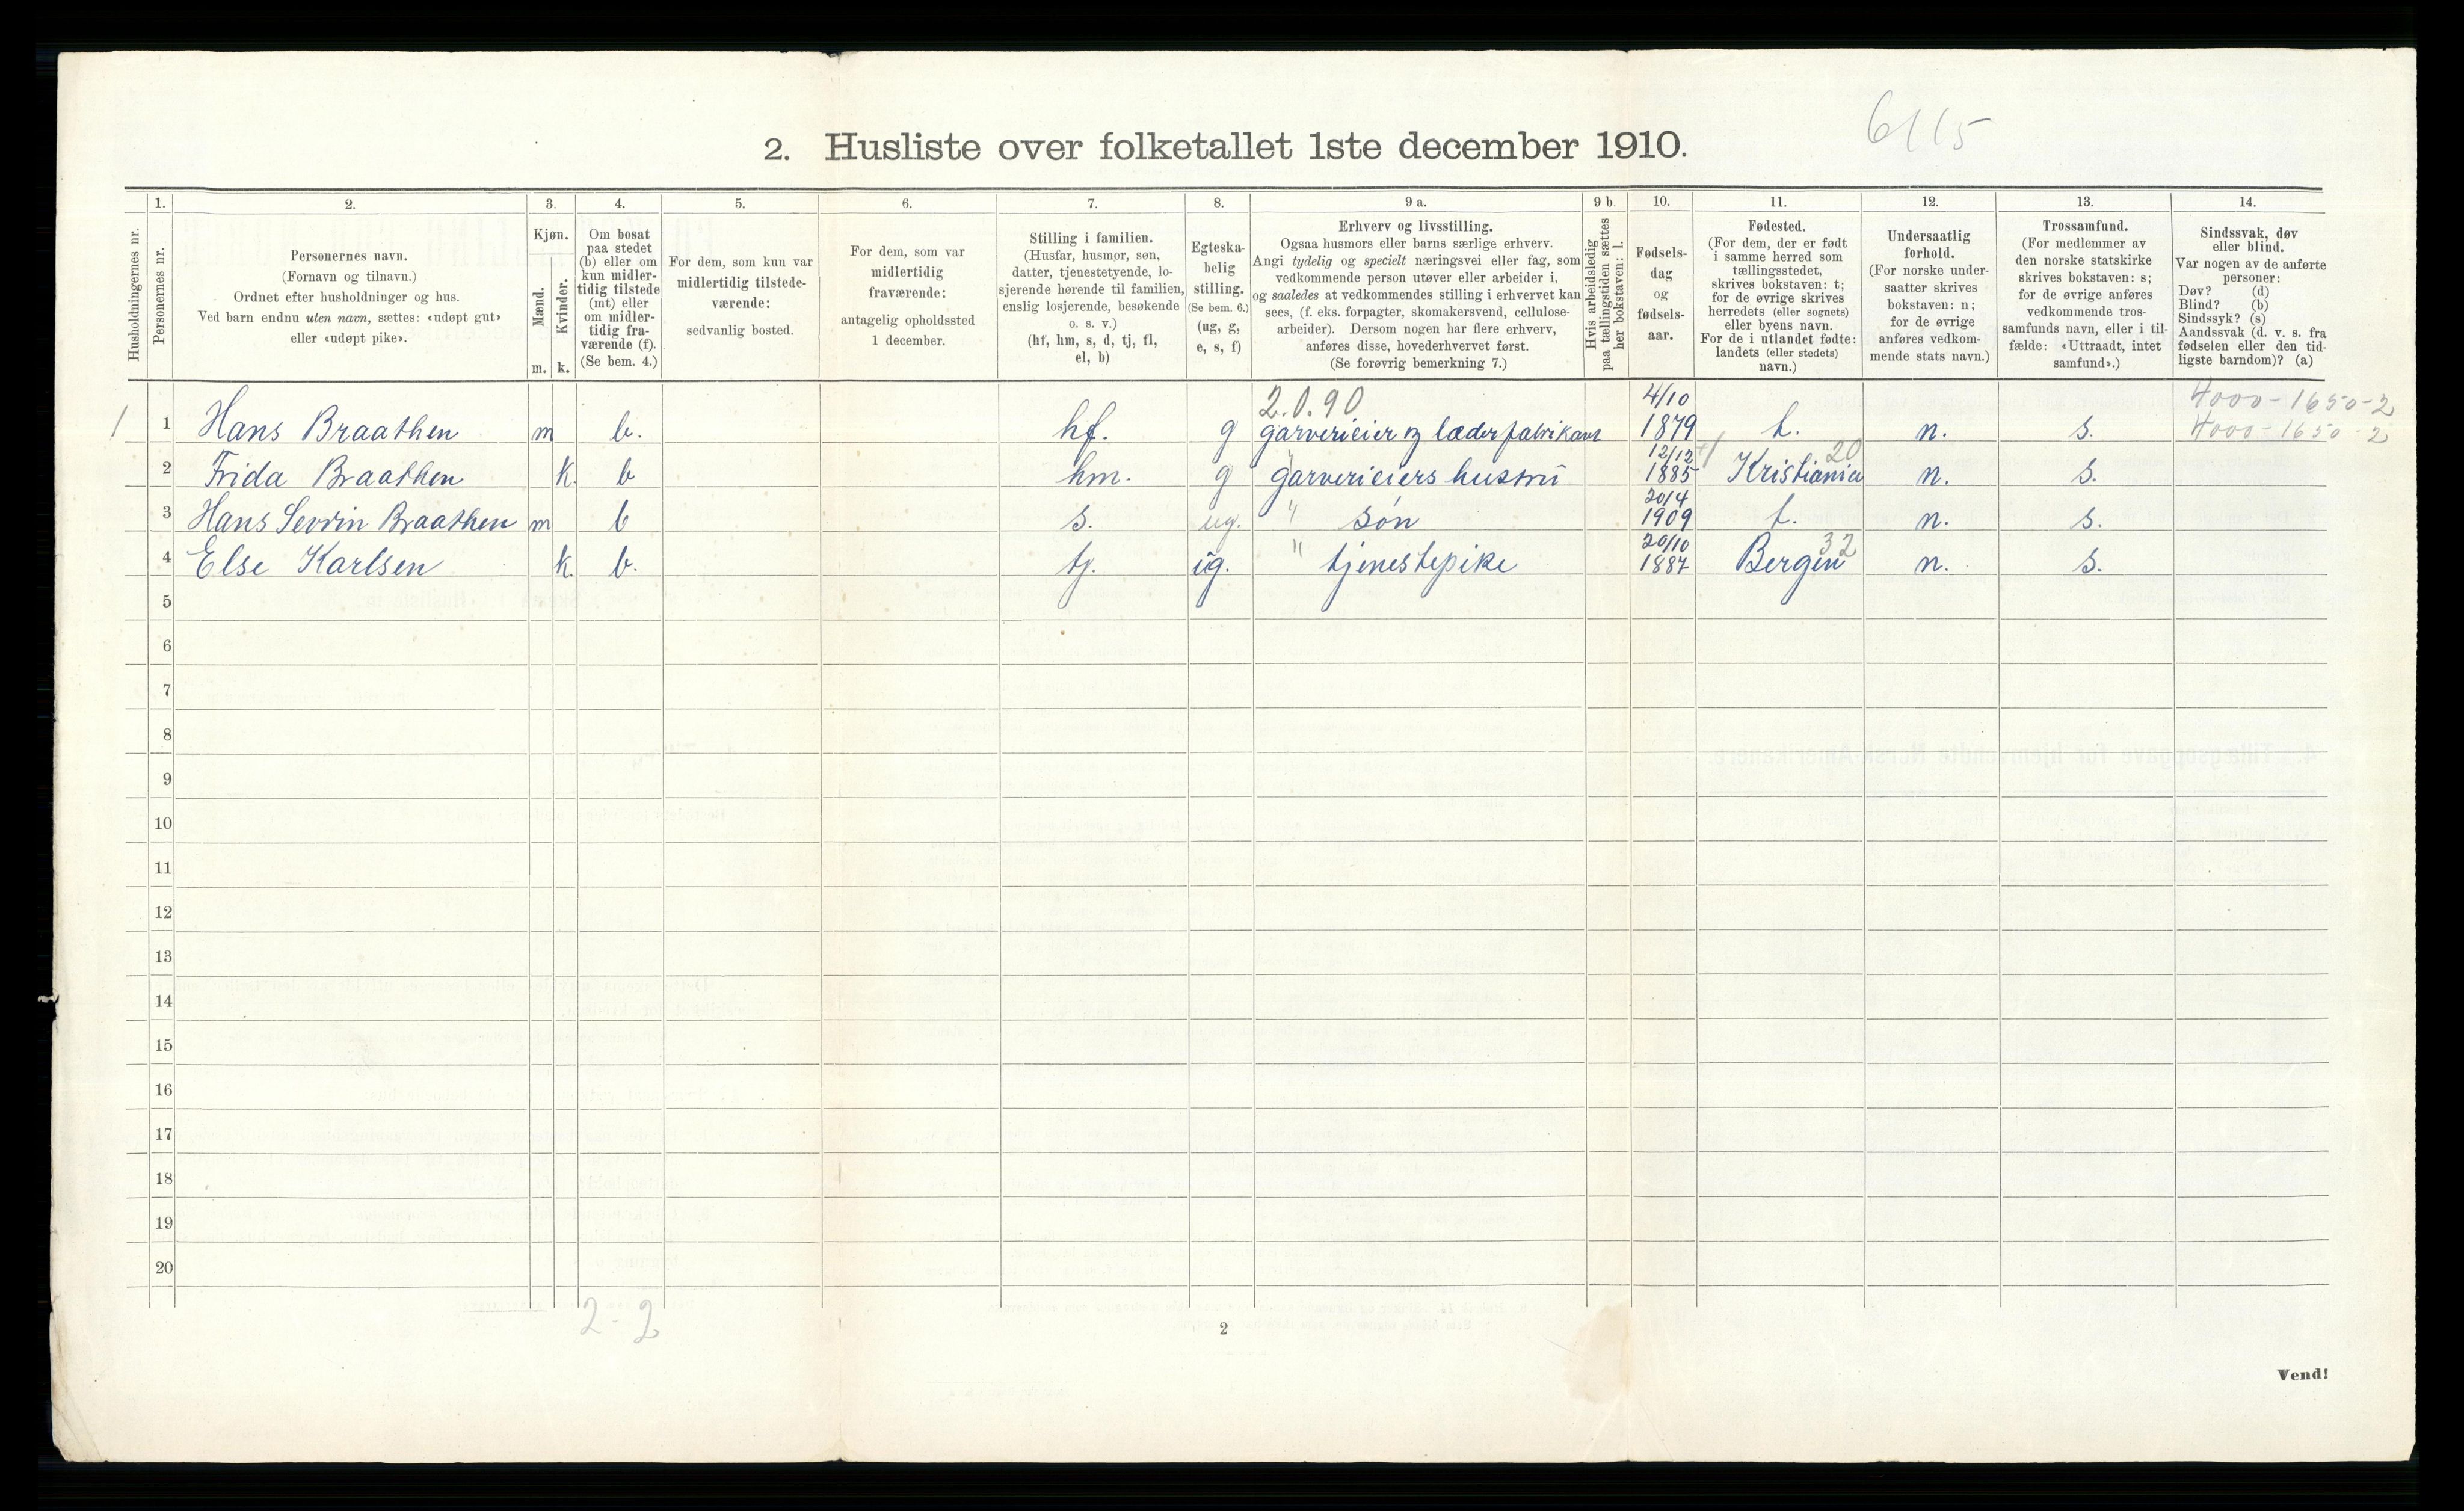 6115
2. Husliste over folketallet 1ste december 1910.
Husholdningernes nr.
1.
Personernes nr.
2.
Personernes navn.
(Fornavn og tilnavn.)
Ordnet efter husholdninger og hus.
Ved barn endnu uten navn, sættes: «udøpt gut»
eller «udøpt pike».
3.
Kjøn.
Mænd.
Kvinder.
m. k.
4.
Om bosat
paa stedet
(b) eller om
kun midler-
tidig tilstede
(mt) eller
om midler-
tidig fra-
værende (f).
(Se bem. 4.)
5.
For dem, som kun var
midlertidig tilstede-
værende:
sedvanlig bosted.
6.
For dem, som var
midlertidig
fraværende:
antagelig opholdssted
1 december.
7.
Stilling i familien.
(Husfar, husmor, søn,
datter, tjenestetyende, lo-
sjerende hørende til familien,
enslig losjerende, besøkende
o. s. v.)
(hf, hm, s, d, tj, fl,
el, b)
8.
Egteska-
belig
stilling.
(Se bem. 6.)
(ug, g,
e, s, f)
9 a.
Erhverv og livsstilling.
Ogsaa husmors eller barns særlige erhverv.
Angi tydelig og specielt næringsvei eller fag, som
vedkommende person utøver eller arbeider i,
og saaledes at vedkommendes stilling i erhvervet kan
sees, (f. eks. forpagter, skomakersvend, cellulose-
arbeider). Dersom nogen har flere erhverv,
anføres disse, hovederhvervet først.
(Se forøvrig bemerkning 7.)
9 b.
Hvis arbeidsledig
paa tællingstiden sættes
her bokstaven: l.
10.
Fødsels-
dag
og
fødsels-
aar.
11.
Fødested.
(For dem, der er født
i samme herred som
tællingsstedet,
skrives bokstaven: t;
for de øvrige skrives
herredets (eller sognets)
eller byens navn.
For de i utlandet fødte:
landets (eller stedets)
navn.)
12.
Undersaatlig
forhold.
(For norske under-
saatter skrives
bokstaven: n;
for de øvrige
anføres vedkom-
mende stats navn.)
13.
Trossamfund.
(For medlemmer av
den norske statskirke
skrives bokstaven: s;
for de øvrige anføres
vedkommende tros-
samfunds navn, eller i til-
fælde: «Uttraadt, intet
samfund».)
14.
Sindssvak, døv
eller blind.
Var nogen av de anførte
personer:
Døv? (d)
Blind? (b)
Sindssyk? (s)
Aandssvak (d. v. s. fra
fødselen eller den tid-
ligste barndom)? (a)
2.0.90 4/10 4000-1650-2
1 1 Hans Braathen m b. hf. g garverieier og læderfabrikant 1879 t. n. s. 4000-1650-2
12/12 20
2 Frida Braathen k. b hm. g " garverieiers hustru 1885 Kristiania n. s.
20/4
3 Hans Sevrin Braathen m b s. ug. " søn 1909 t. n. s.
20/10 32
4 Else Karlsen k. b. tj. ug. " tjenestepike 1887 Bergen n. s.
5
6
7
8
9
10
11
12
13
14
15
16
17
18
19
20
2-2
2
Vend!